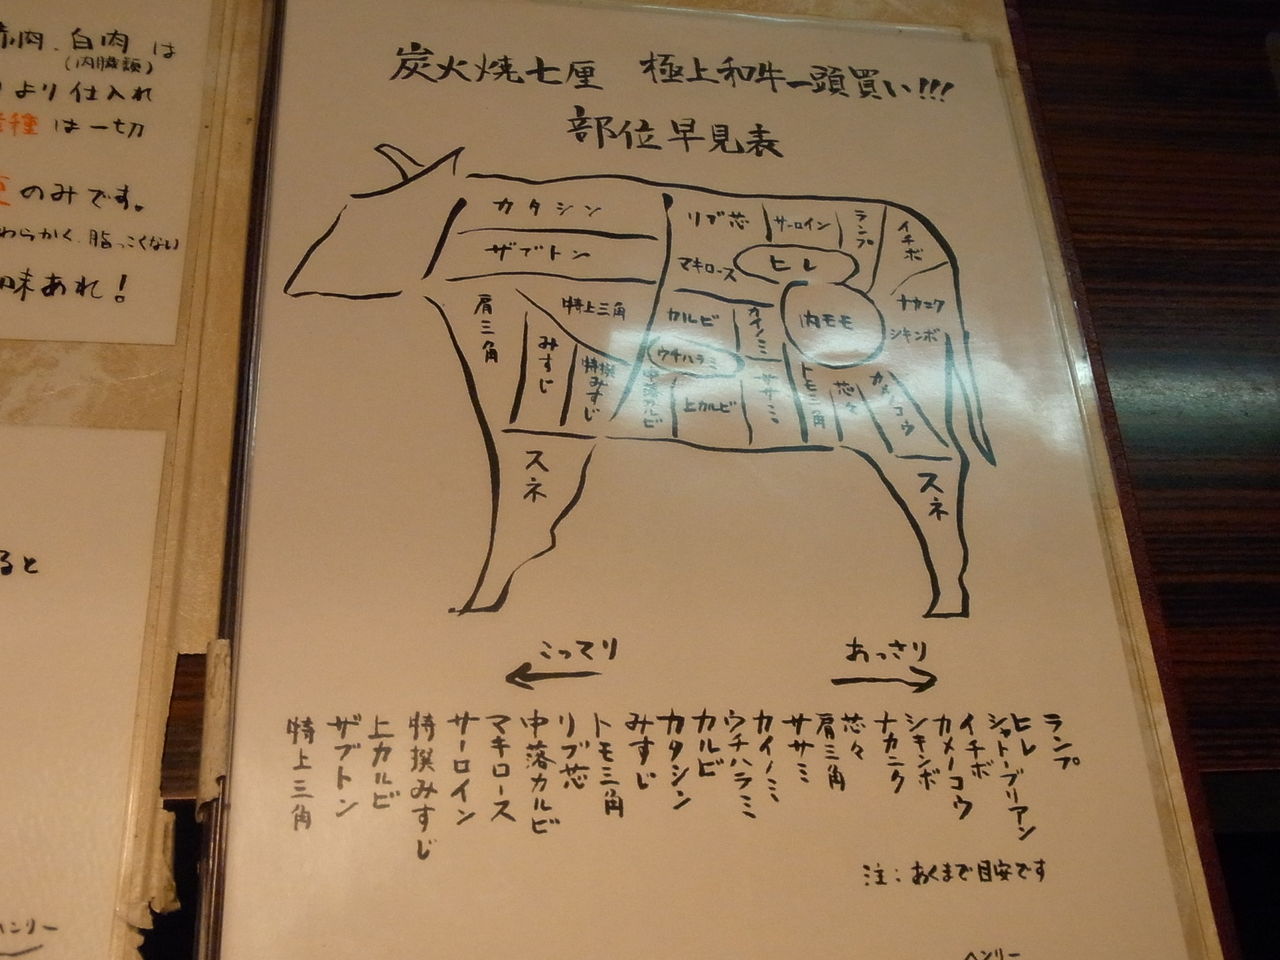 赤肉、白肉は
(内臓類)
より仕入れ
種は一切
のみです。
わらかく、脂っこくない
味あれ!
ると
ヘンリー
炭火焼七厘 極上和牛一頭買い!!!
部位早見表
カタシン
ザブトン
リブ芯
サーロイン
ランプ
イチボ
マキロース
ヒレ
肩三角
特上三角
みすじ
特撰みすじ
カルビ
カイノミ
内モモ
ナカニク
シキンボ
ウチハラミ
中落カルビ
上カルビ
ササミ
トモ三角
芯々
カメノコウ
スネ
スネ
こってり
あっさり
ランプ
ヒレ
シャトーブリアン
イチボ
カメノコウ
シキンボ
ナカニク
芯々
肩三角
ササミ
カイノミ
ウチハラミ
カルビ
カタシン
みすじ
トモ三角
リブ芯
中落カルビ
マキロース
サーロイン
特撰みすじ
上カルビ
ザブトン
特上三角
注:あくまで目安です
ヘンリー